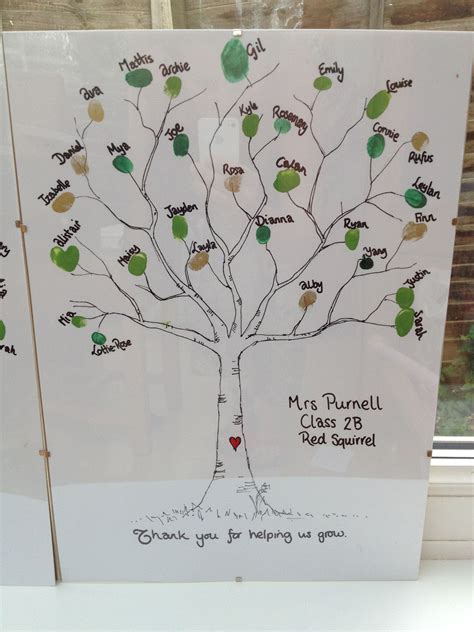 Gil
Mattis
archie
Emily
Louise
ava
Kyle
Rosemary
Connie
Joe
Rufus
Daniel
Mya
Rosa
Caelan
Leylan
Isabelle
Jayden
Dianna
Ryan
Finn
alistair
Haley
Layla
Yang
Justin
alby
Mia
Lottie-Rose
Sarah
Mrs Purnell
Class 2B
Red Squirrel
Thank you for helping us grow.
rah